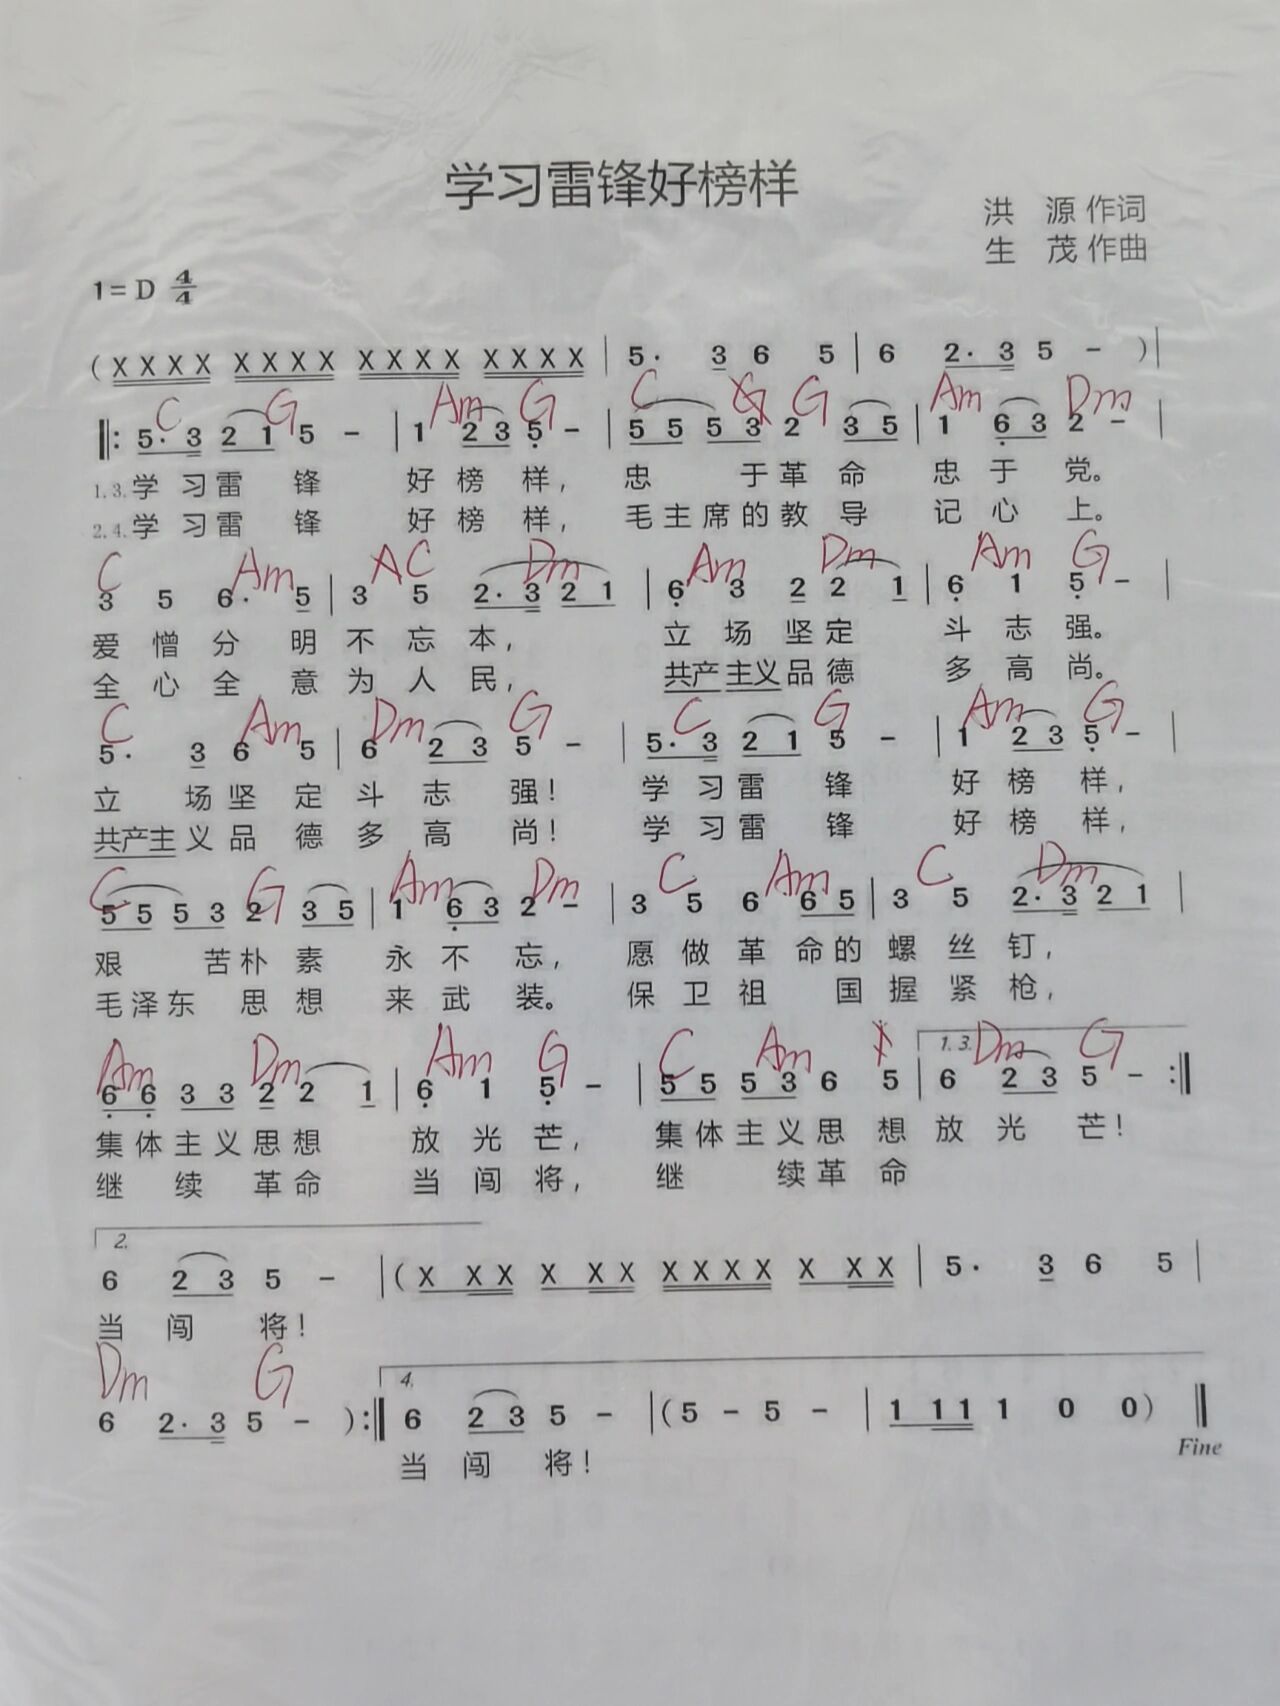 学习雷锋好榜样
洪 源 作词
生 茂 作曲
1=D 4/4
( X X X X X X X X X X X X X X X X | 5· 3 6 5 | 6 2· 3 5 - ) |
C G Am G C G G Am Dm
‖: 5· 3 2 1 5 - | 1 2 3 5 - | 5 5 5 3 2 3 5 | 1 6 3 2 - |
1.3.学 习 雷 锋 好 榜 样, 忠 于 革 命 忠 于 党。
2.4.学 习 雷 锋 好 榜 样, 毛 主 席 的 教 导 记 心 上。
C Am A C Dm Am Dm Am G
3 5 6· 5 | 3 5 2· 3 2 1 | 6 3 2 2 1 | 6 1 5 - |
爱 憎 分 明 不 忘 本, 立 场 坚 定 斗 志 强。
全 心 全 意 为 人 民, 共产 主义 品 德 多 高 尚。
C Am Dm G C G Am G
5· 3 6 5 | 6 2 3 5 - | 5· 3 2 1 5 - | 1 2 3 5 - |
立 场 坚 定 斗 志 强! 学 习 雷 锋 好 榜 样,
共产主 义 品 德 多 高 尚! 学 习 雷 锋 好 榜 样,
C G Am Dm C Am C Dm
5 5 5 3 2 3 5 | 1 6 3 2 - | 3 5 6 6 5 | 3 5 2· 3 2 1 |
艰 苦 朴 素 永 不 忘, 愿 做 革 命 的 螺 丝 钉,
毛 泽 东 思 想 来 武 装。 保 卫 祖 国 握 紧 枪,
Am Dm Am G C Am 1. 3. Dm G
6 6 3 3 2 2 1 | 6 1 5 - | 5 5 5 3 6 5 | 6 2 3 5 - :‖
集 体 主 义 思 想 放 光 芒, 集 体 主 义 思 想 放 光 芒!
继 续 革 命 当 闯 将, 继 续 革 命
2.
6 2 3 5 - | ( X X X X X X X X X X X X X | 5· 3 6 5 |
当 闯 将!
Dm G 4.
6 2· 3 5 - ) :‖ 6 2 3 5 - | ( 5 - 5 - | 1 1 1 1 0 0 ) ‖
当 闯 将!
Fine